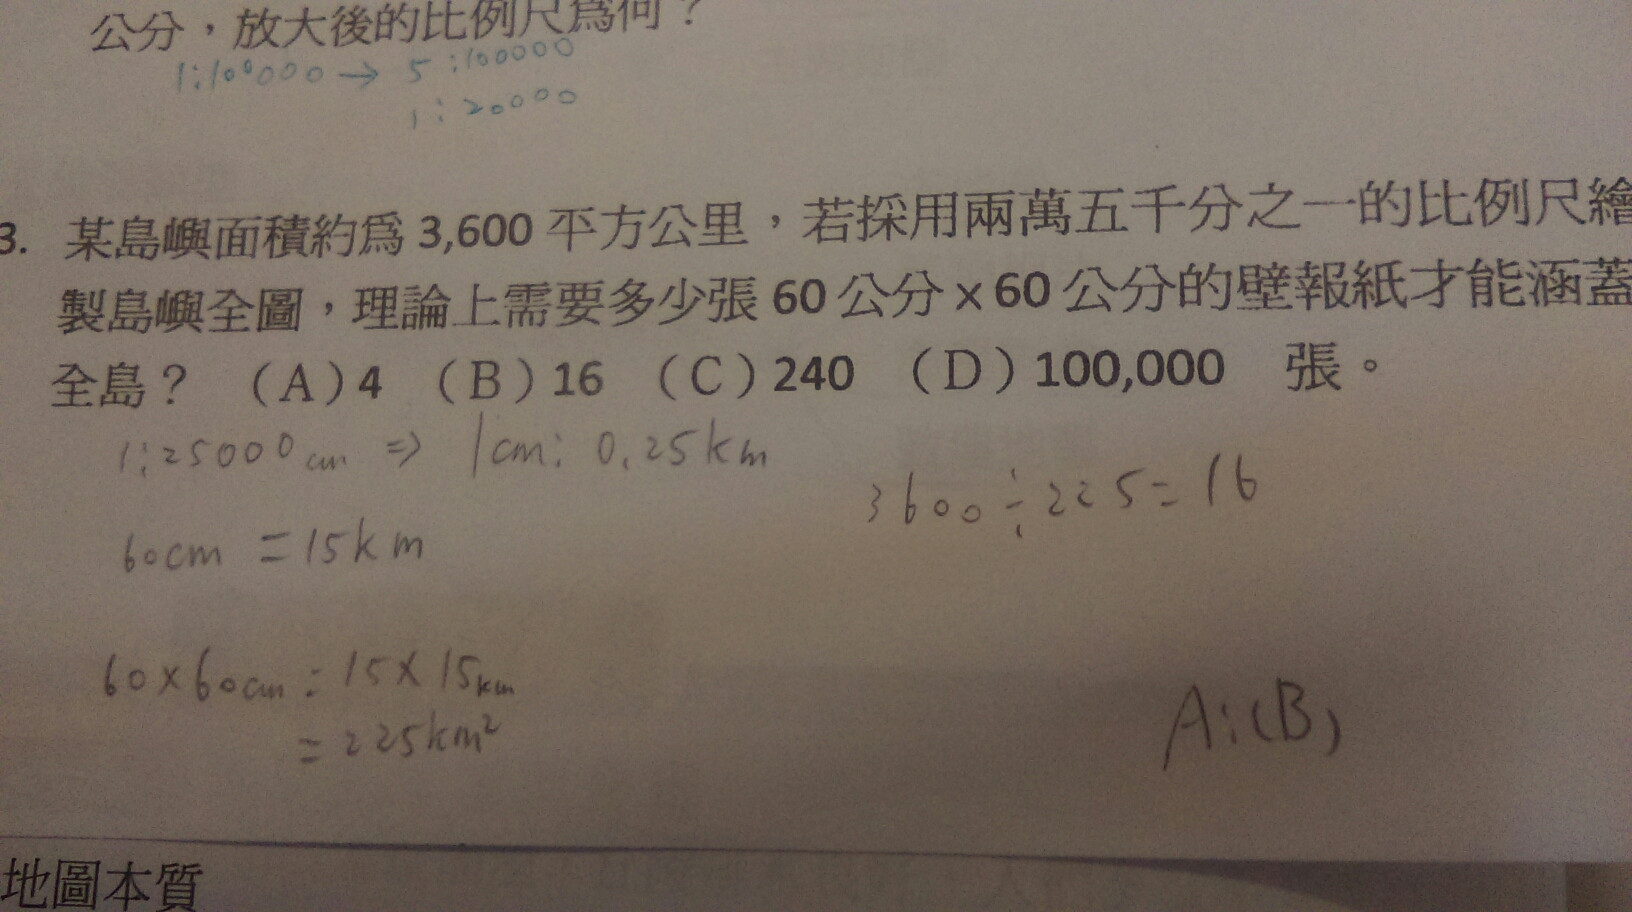 公分，放大後的比例尺為何？
1:100000 → 5:100000
1:20000
3. 某島嶼面積約為 3,600 平方公里，若採用兩萬五千分之一的比例尺繪
製島嶼全圖，理論上需要多少張 60 公分 x 60 公分的壁報紙才能涵蓋
全島？ （A）4 （B）16 （C）240 （D）100,000 張。
1:25000cm ⇒ 1cm: 0.25km
3600÷225=16
60cm =15km
60×60cm = 15×15km
= 225km²
A:(B)
地圖本質